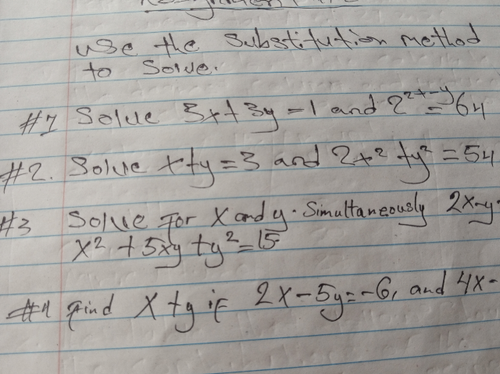 use the substitution method
to solve.
#1 Solve 3x+3y=1 and 2²ˣ⁻ʸ=64
#2. Solve x+y=3 and 2x²+y²=54
#3 Solve for x and y. Simultaneously 2x-y
x²+5xy+y²=15
#4 find x+y if 2x-5y=-6, and 4x-